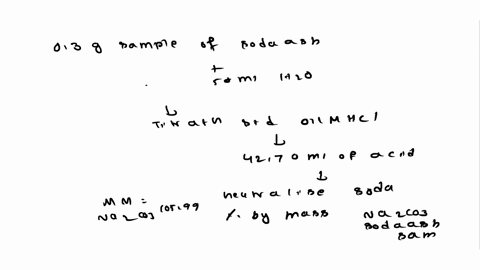 0.3 g sample of soda ash
+
50 ml H2O
↓
Titrate std 0.1 M HCl
↓
42.70 ml of acid
↓
neutralise soda
MM = Na2CO3 105.99
% by mass Na2CO3
soda ash
sam